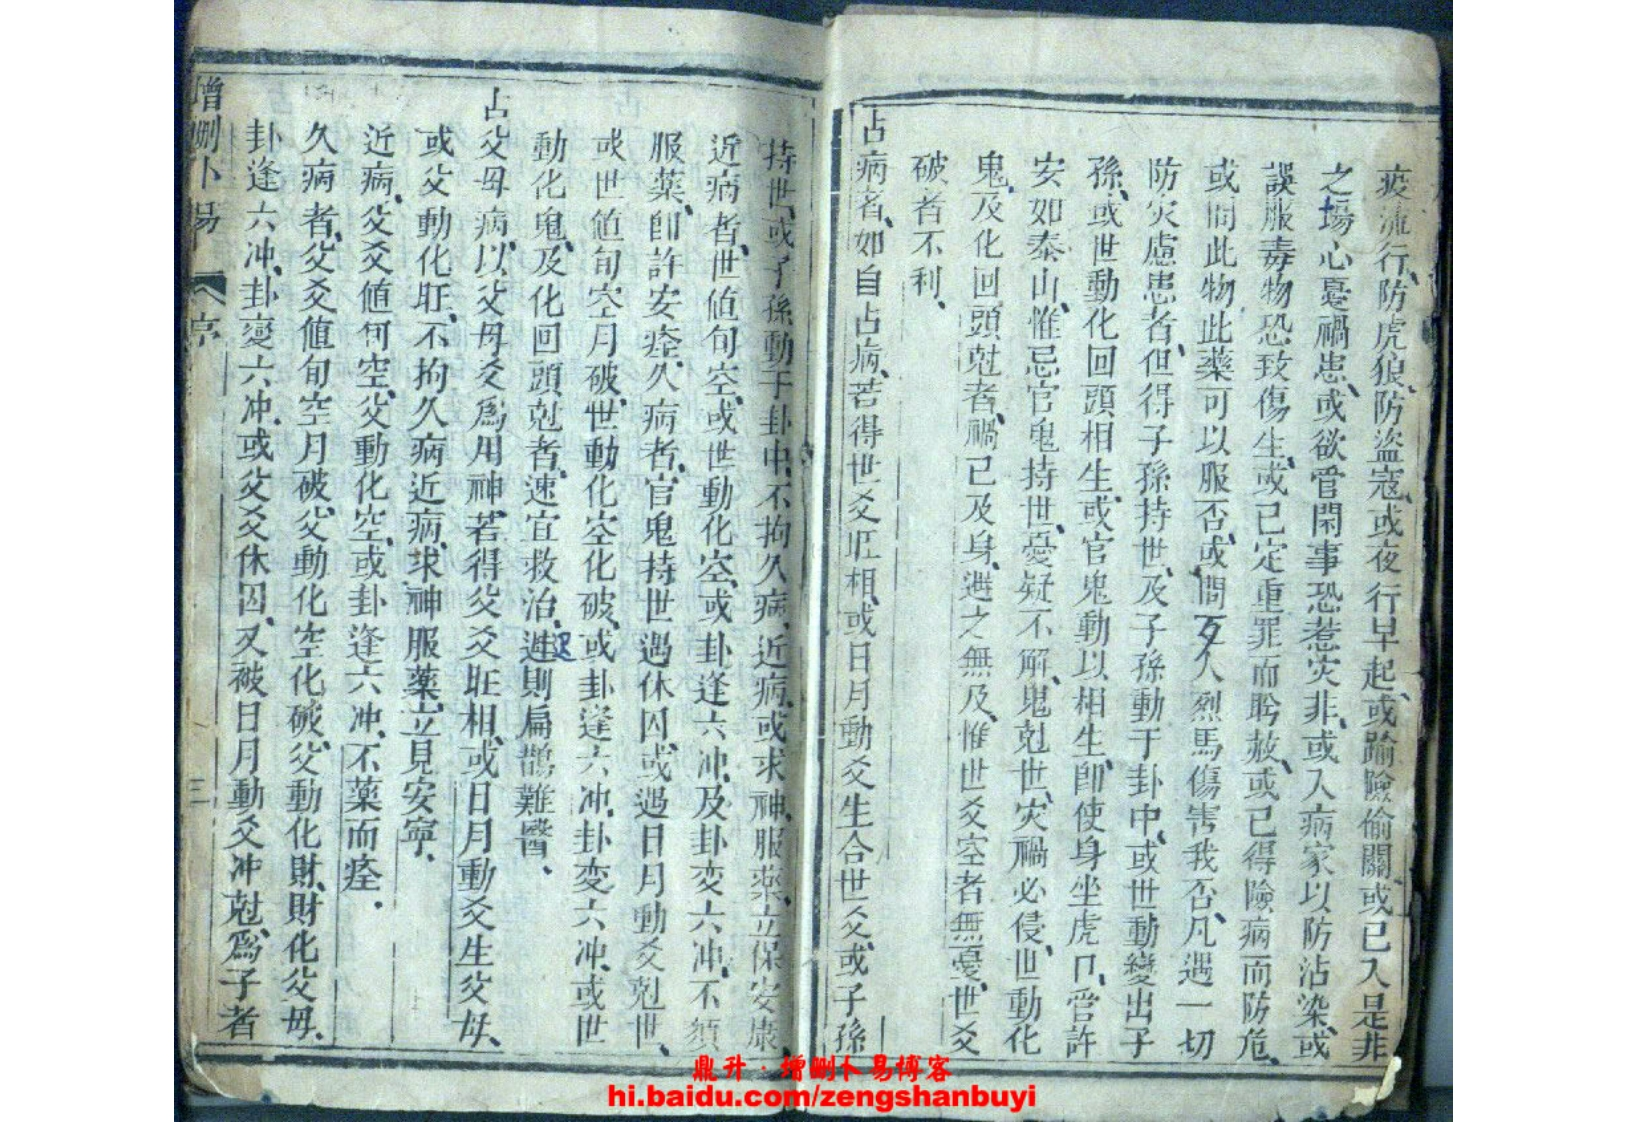 疫流行、防虎狼、防盜寇、或夜行早起、或踰險偷關、或已入是非
之場、心憂禍患、或欲管閑事恐惹灾非、或入病家以防沾染、或
誤服毒物恐致傷生、或已定重罪而盻赦、或已得險病而防危、
或問此物、此藥可以服否、或問万人烈馬傷害我否、凡遇一切
防灾慮患者、但得子孫持世、及子孫動于卦中、或世動變出子
孫、或世動化回頭相生、或官鬼動以相生、卽使身坐虎口、管許
安如泰山、惟忌官鬼持世、憂疑不解、鬼尅世、灾禍必侵、世動化
鬼、及化回頭尅者、禍已及身、避之無及、惟世爻空者無憂、世爻
破者不利、
占病者、如自占病、若得世爻旺相、或日月動爻生合世爻、或子孫
持世、或子孫動于卦中、不拘久病、近病、或求神、服藥、立保安康、
近病者、世値旬空、或世動化空、或卦逢六冲、及卦变六冲、不須
服藥、卽許安痊、久病者、官鬼持世、遇休囚、或遇日月動爻尅世、
或世値旬空、月破、世動化空化破、或卦逢六冲、卦变六冲、或世
動化鬼、及化回頭尅者、速宜救治、遲則扁鵲難醫、
占父母病、以父母爻爲用神、若得父爻旺相、或日月動爻生父母、
或父動化旺、不拘久病近病、求神服藥、立見安寧、
近病、父爻値旬空、父動化空、或卦逢六冲、不藥而痊、
久病者、父爻値旬空月破、父動化空化破、父動化財、財化父母、
卦逢六冲、卦變六冲、或父爻休囚、又被日月動爻冲尅、爲子者
增刪卜易 序 三
鼎升·增刪卜易博客
hi.baidu.com/zengshanbuyi